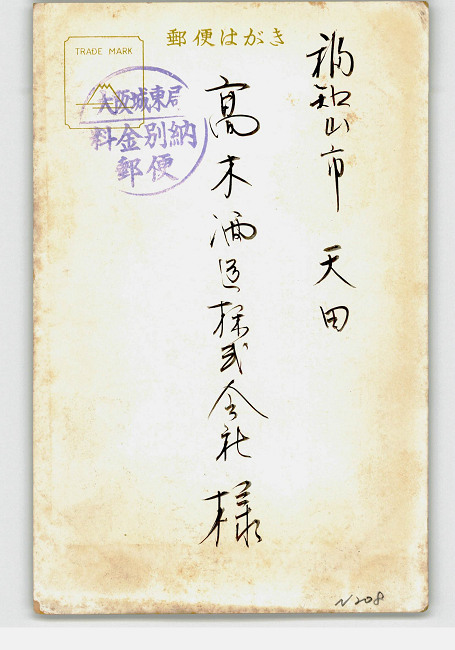 郵便はがき
TRADE MARK
大阪城東局
料金別納
郵便
福知山市 天田
高木酒造株式会社 様
N208